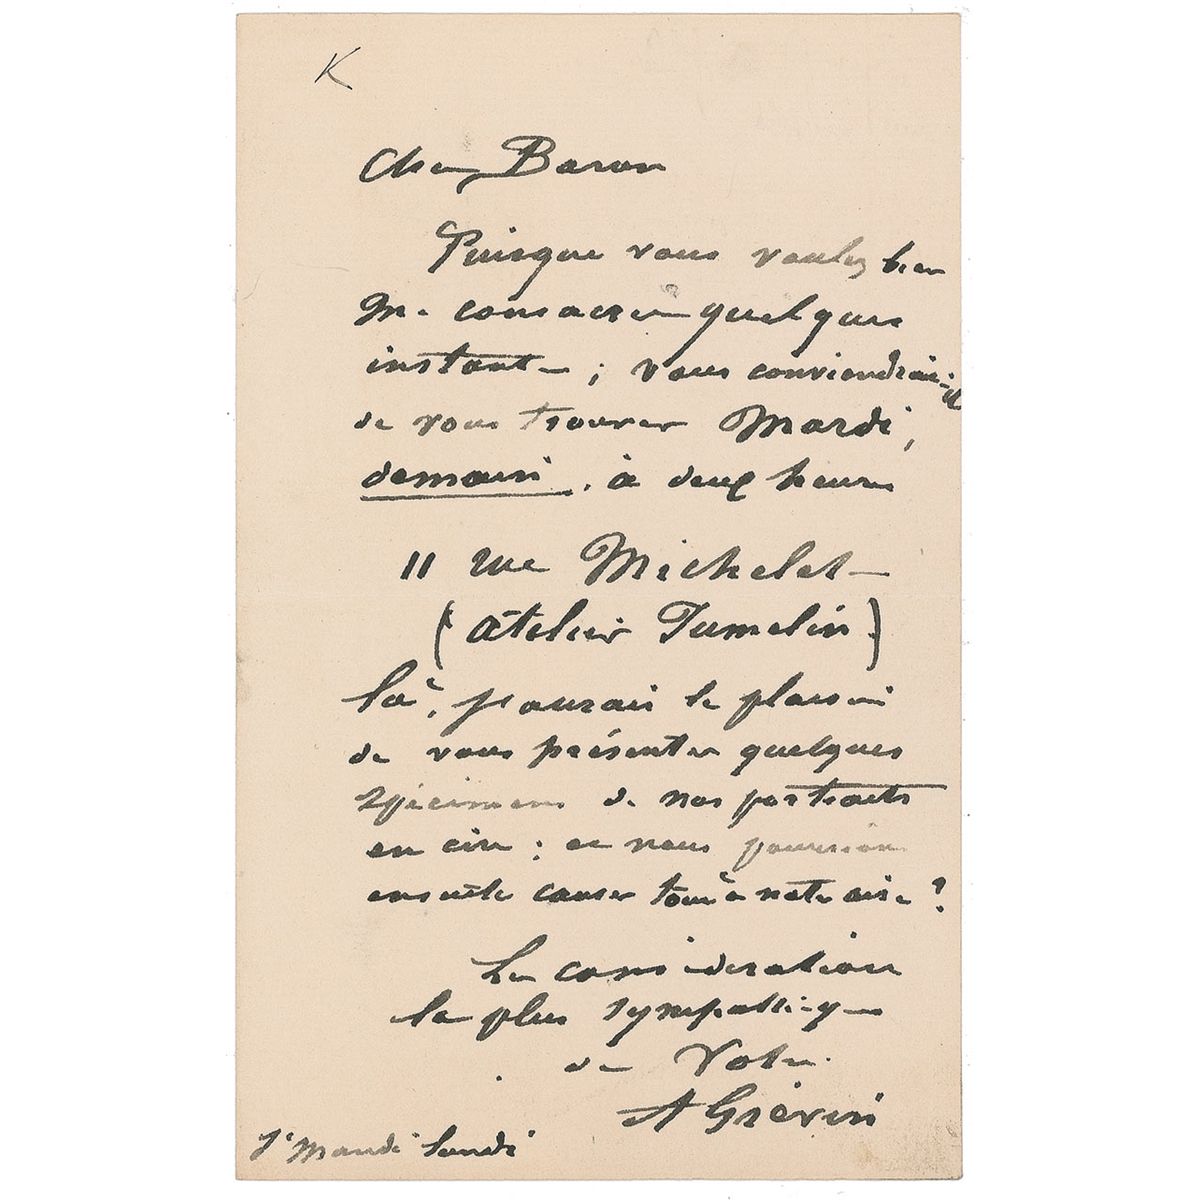 K
Cher Baron
Puisque vous voulez bien
me consacrer quelques
instants ; vous conviendrait-il
de vous trouver Mardi,
demain, à deux heures
11 rue Michelet
(atelier Jumelin)
là, j'aurais le plaisir
de vous présenter quelques
spécimens de nos portraits
en cire ; et nous pourrions
ensuite causer tout à notre aise ?
La consideration
la plus sympathique
de Votre
A Grévin
St Mandé lundi